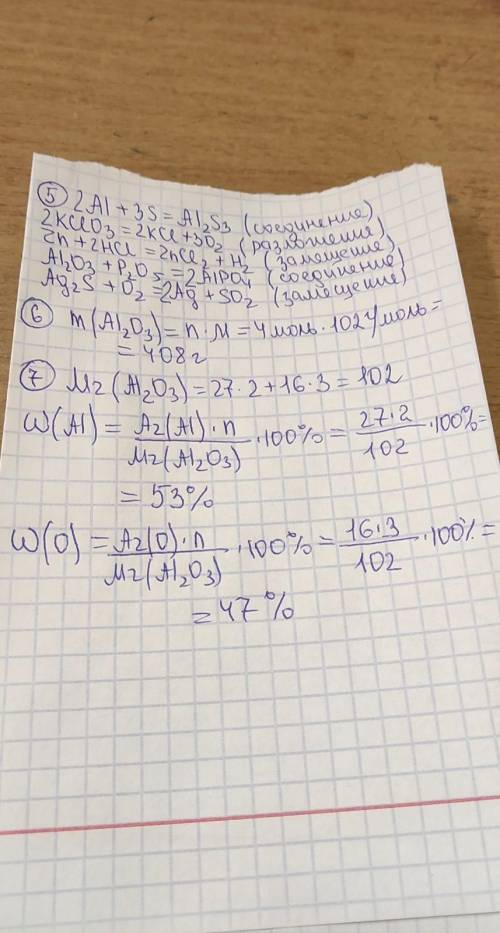 ⑤ 2Al + 3S = Al₂S₃ (соединение)
2KClO₃ = 2KCl + 3O₂ (разложения)
Zn + 2HCl = ZnCl₂ + H₂ (замещение)
Al₂O₃ + P₂O₅ = 2AlPO₄ (соединение)
Ag₂S + O₂ = 2Ag + SO₂ (замещение)
⑥ m(Al₂O₃) = n · M = 4 моль · 102 г/моль =
= 408 г
⑦ Mr(Al₂O₃) = 27 · 2 + 16 · 3 = 102
W(Al) = Ar(Al) · n / Mr(Al₂O₃) · 100% = 27 · 2 / 102 · 100% =
= 53%
W(O) = Ar(O) · n / Mr(Al₂O₃) · 100% = 16 · 3 / 102 · 100% =
= 47%